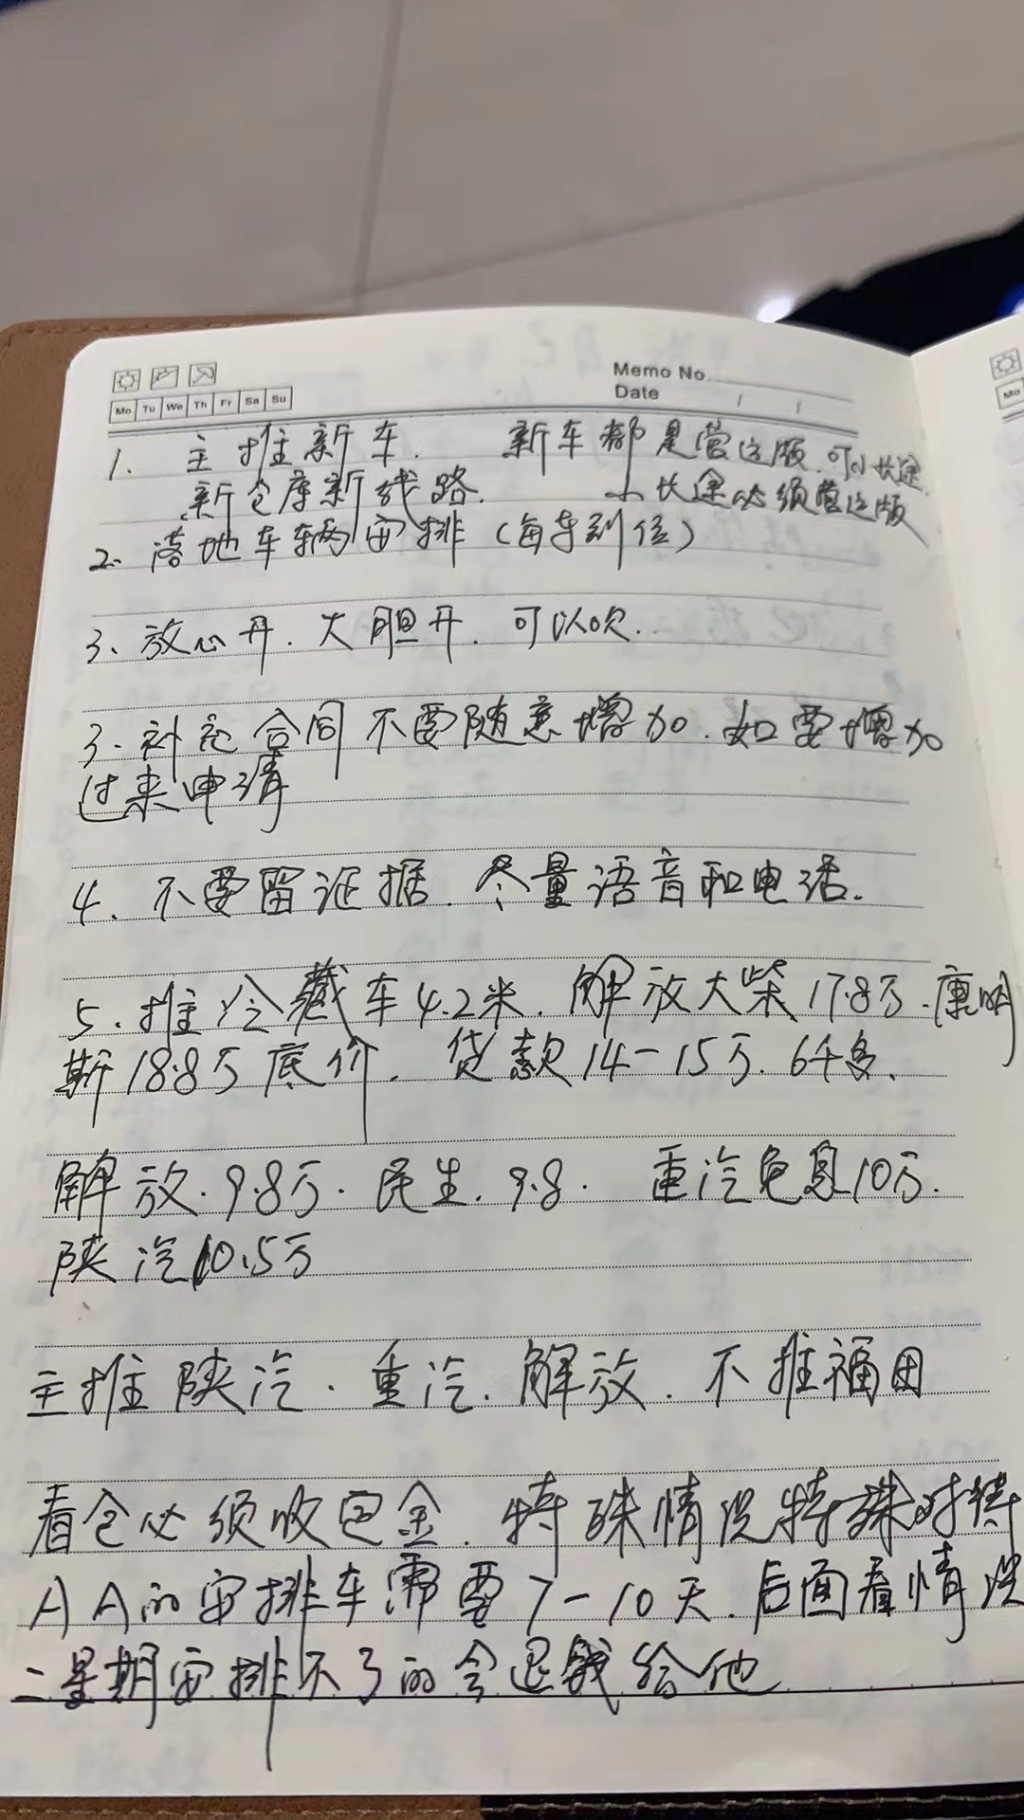 Memo No.
Mo Tu We Th Fr Sa Su
Date / /
1. 主推新车. 新车都是营运版.可小长途.
新仓库新线路. 小长途必须营运版
2. 落地车辆安排(每车到位)
3、放心开.大胆开.可以吹.
3.补充合同不要随意增加.如要增加
过来申请
4、不要留证据.尽量语音和电话.
5.推冷藏车4.2米.解放大柴17.8万.康明
斯18.8万底价.贷款14-15万.6千多.
解放.9.8万.民生.9.8. 重汽免息10万.
陕汽10.5万
主推陕汽.重汽.解放.不推福田
看仓必须收定金.特殊情况特殊对待
AA的安排车需要7-10天.后面看情况
二星期安排不了的会退钱给他
Mo